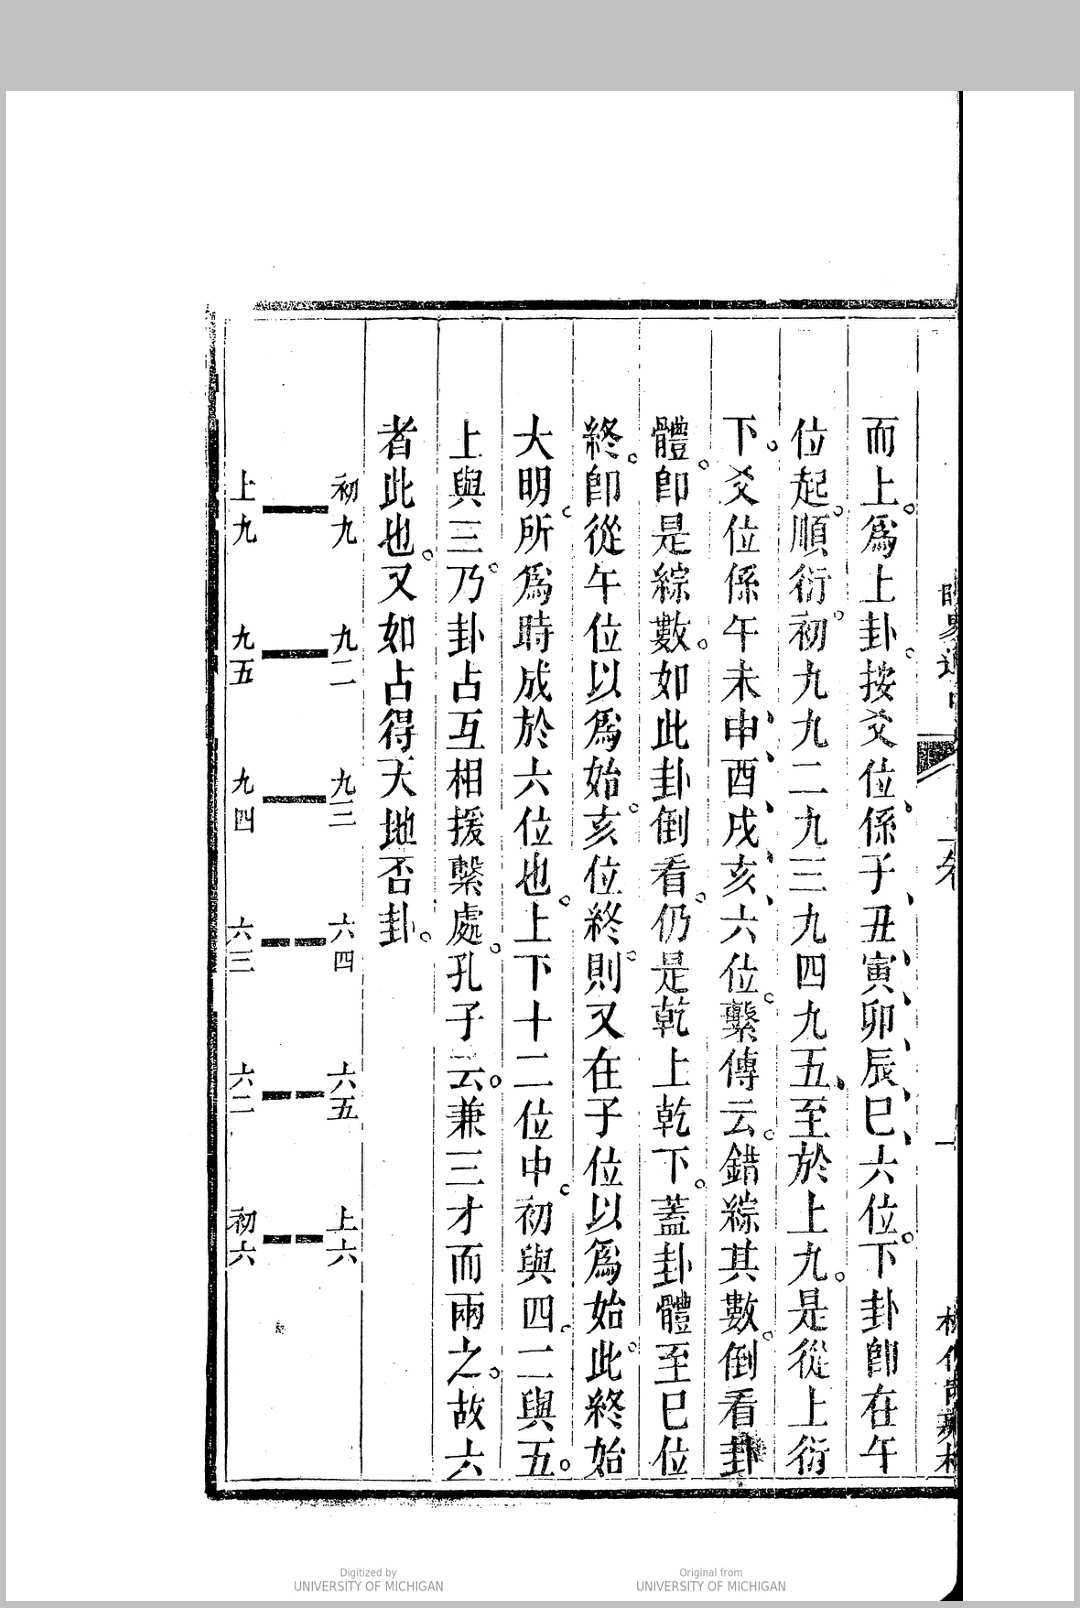 而上。爲上卦。按爻位、係子、丑、寅、卯、辰、巳、六位。下卦卽在午
位起。順衍。初九九二九三九四九五、至於上九。是從上衍
下。爻位係午未申、酉、戌、亥、六位。繫傳云。錯綜其數。倒看卦
體。卽是綜數。如此卦倒看。仍是乾上乾下。蓋卦體至巳位
終。卽從午位以爲始。亥位終。則又在子位以爲始。此終始
大明。所爲時成於六位也。上下十二位中。初與四。二與五。
上與三。乃卦占互相援繫處。孔子云。兼三才而兩之。故六
者此也。又如占得天地否卦。
初九 九二 九三 六四 六五 上六
上九 九五 九四 六三 六二 初六
Digitized by
UNIVERSITY OF MICHIGAN
Original from
UNIVERSITY OF MICHIGAN